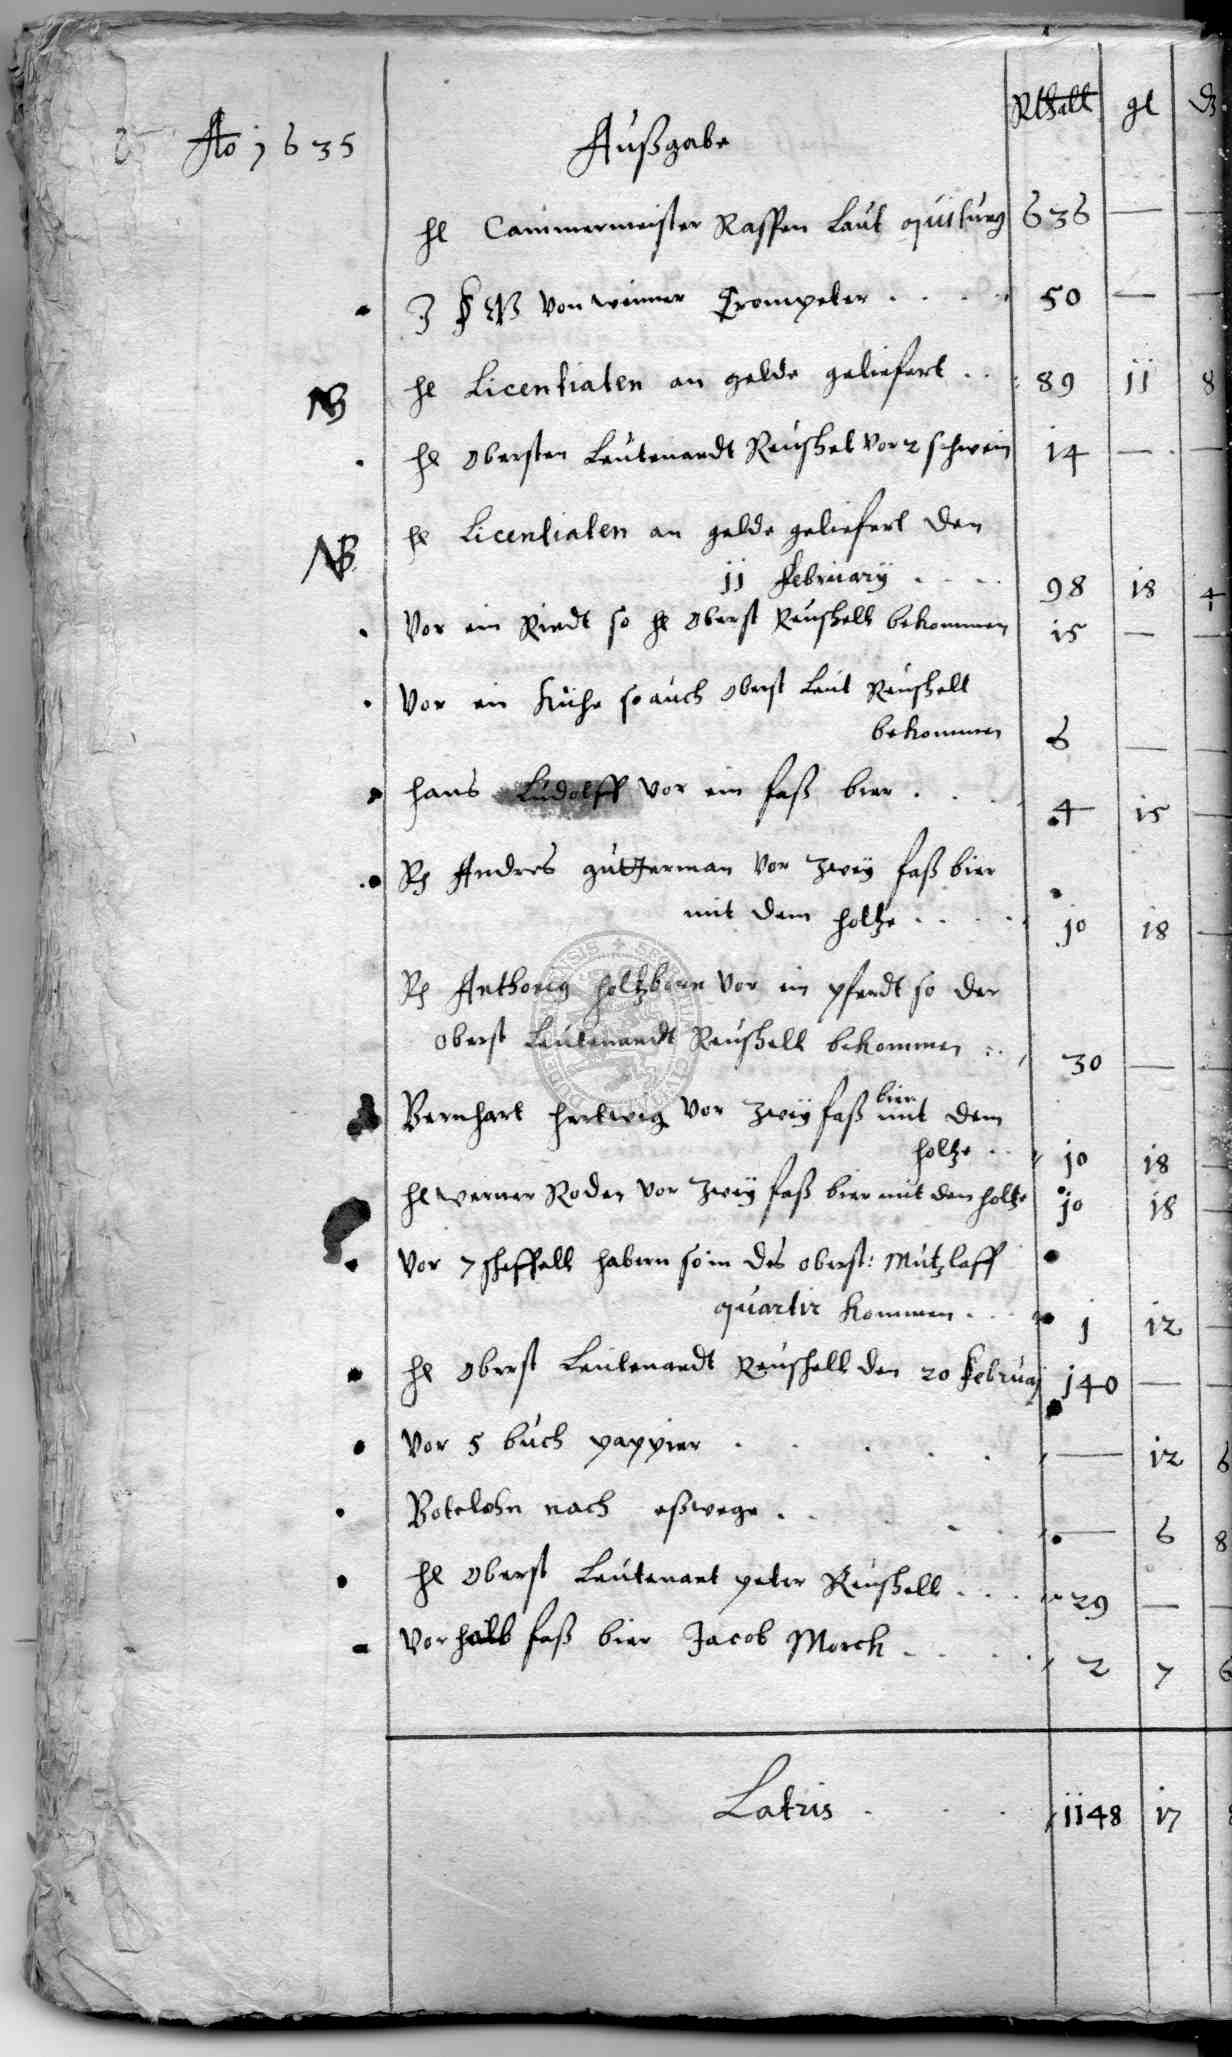 Ao 1635 Außgabe Rthall gl
hl Cammermeister Raffen Laut quitung 636 —
J F W von weimar Trompeter 50 —
NB hl Licentiaten an gelde geliefert 89 11 8
hl Obersten Leutenandt Reushel vor 2 schwein 14 —
NB hl Licentiaten an gelde geliefert den
11 February 98 18 4
Vor ein Riedt so hl Oberst Reushell bekommen 15 —
Vor ein Kuhe so auch Oberst Leut Reushell
bekommen 6 —
hans Ludolff vor ein faß bier 4 15
Andres gutterman vor zwey faß bier
mit dem holtze 10 18
Anthonig holtzborn vor ein pferdt so der
Oberst Leutenandt Reushell bekommen 30 —
Bernhart hertwig vor zwey faß bier mit dem
holtze 10 18
hl werner Roden vor zwey faß bier mit den holtze 10 18
Vor 7 scheffell habern so in des oberst: Mutzlaff
quartir kommen 1 12
hl Oberst Leutenandt Reushell den 20 February 140 —
Vor 5 buch pappier — 12 6
Botelohn nach eßwege — 6 8
hl Oberst Leutenant peter Reushell 29 —
Vor halb faß bier Jacob Morck 2 7 6
Latris 1148 17